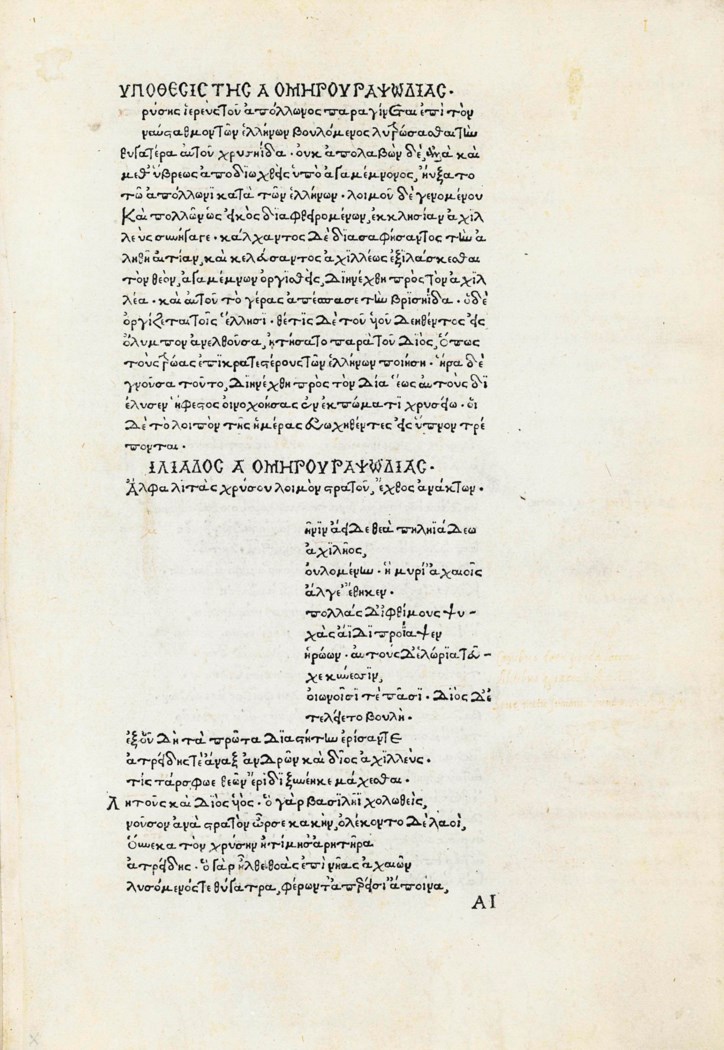 ΥΠΟΘΕСΙС ΤΗС Α ΟΜΗΡΟΥ ΡΑΨΩΔΙΑС.
ρύσης ἱερεὺς τοῦ ἀπόλλωνος παραγίνεται ἐπὶ τὸν
ναύσταθμον τῶν ἑλλήνων βουλόμενος λυτρώσασθαι τὴν
θυγατέρα αὐτοῦ χρυσηίδα. οὐκ ἀπολαβὼν δὲ, ἀλλὰ καὶ
μεθ' ὕβρεως ἀποδιωχθεὶς ὑπὸ ἀγαμέμνονος, ηὔξατο
τῶ ἀπόλλωνι κατὰ τῶν ἑλλήνων. λοιμοῦ δὲ γενομένου
Καὶ πολλῶν ὡς εἰκὸς διαφθειρομένων, ἐκκλησίαν ἀχιλ
λεὺς συνήγαγε. κάλχαντος δὲ διασαφήσαντος τὴν ἀ
ληθῆ αἰτίαν, καὶ κελεύσαντος ἀχιλλέως ἐξιλάσκεσθαι
τὸν θεὸν, ἀγαμέμνων ὀργισθεὶς, διηνέχθη πρὸς τὸν ἀχιλ
λέα. καὶ αὐτοῦ τὸ γέρας ἀπέσπασε τὴν βρισηίδα. ὁ δὲ
ὀργίζεται τοῖς ἕλλησι. θέτις δὲ τοῦ υἱοῦ δεηθέντος εἰς
ὄλυμπον ἀνελθοῦσα, ᾐτήσατο παρὰ τοῦ διὸς, ὅπως
τοὺς τρῶας ἐπικρατεστέρους τῶν ἑλλήνων ποιήση. ἥρα δὲ
γνοῦσα τοῦτο, διηνέχθη πρὸς τὸν δία ἕως αὐτοὺς δι
έλυσεν ἥφεστος οἰνοχοήσας ἐν ἐκπώματι χρυσείω. οἱ
δὲ τὸ λοιπὸν τῆς ἡμέρας εὐωχηθέντες εἰς ὕπνον τρέ
πονται.
ΙΛΙΑΔΟС Α ΟΜΗΡΟΥ ΡΑΨΩΔΙΑС.
Ἄλφα λιτὰς χρύσου λοιμὸν στρατοῦ, ἔχθος ἀνάκτων.
ῆνιν ἄειδε θεὰ πηληιάδεω
ἀχιλῆος,
οὐλομένην. ἣ μυρί' ἀχαιοῖς
ἄλγε' ἔθηκεν.
πολλὰς δ' ἰφθίμους ψυ-
χὰς ἄϊδι προΐαψεν
ἡρώων. αὐτοὺς δ' ἑλώρια τεῦ-
χε κύνεσιν,
οἰωνοῖσί τε πᾶσι. διὸς δ' ἐ
τελείετο βουλή.
ἐξ οὗ δὴ τὰ πρῶτα διαστήτην ἐρίσαντε
ἀτρείδης τε ἄναξ ἀνδρῶν καὶ δῖος ἀχιλλεύς.
τίς τάρ σφωε θεῶν ἔριδι ξυνέηκε μάχεσθαι.
Λητοῦς καὶ διὸς υἱός. ὁ γὰρ βασιλῆϊ χολωθεὶς,
νοῦσον ἀνὰ στρατὸν ὦρσε κακὴν, ὀλέκοντο δὲ λαοὶ,
οὕνεκα τὸν χρύσην ἠτίμησ' ἀρητῆρα
ἀτρείδης. ὁ γὰρ ἦλθε θοὰς ἐπὶ νῆας ἀχαιῶν
λυσόμενός τε θύγατρα, φέρων τ' ἀπερείσι' ἄποινα,
ΑΙ